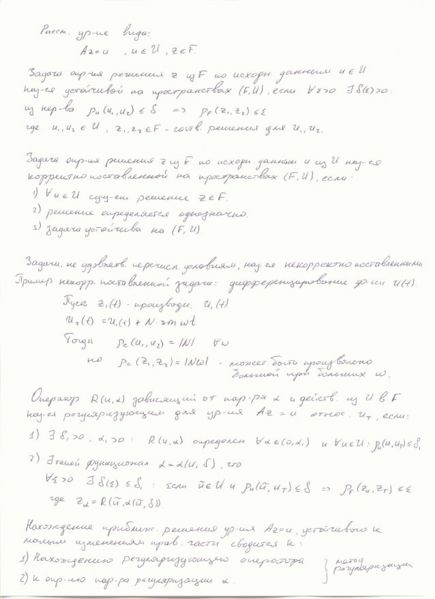 Рассм. ур-ие вида:
Az=u , u∈U, z∈F
Задача опр-ия решения z из F по исходн данным u∈U
наз-ся устойчивой на пространствах (F,U), если ∀ε>0 ∃δ(ε)>0:
из нер-ва ρ_u(u₁,u₂)≤δ ⇒ ρ_F(z₁,z₂)≤ε
где u₁,u₂∈U, z₁,z₂∈F - соотв. решения для u₁,u₂.
Задача опр-ия решения z из F по исходн данным u из U наз-ся
корректно поставленной на пространствах (F,U), если:
1) ∀u∈U сущ-ет решение z∈F.
2) решение определяется однозначно.
3) задача устойчива на (F,U)
Задачи, не удовлетв. перечисл. условиям, наз-ся некорректно поставленными
Пример некорр. поставленной задачи: дифференцирование ф-ии u(t).
Пусть z₁(t) - производн. u₁(t)
u₂(t)=u₁(t)+N·sin ωt
Тогда ρ_c(u₁,u₂)=|N| ∀ω
но ρ_c(z₁,z₂)=|Nω| - может быть произвольно
большой при больших ω.
Оператор R(u,α) зависящий от пар-ра α и действ. из U в F
наз-ся регуляризующим для ур-ия Az=u относ. u_T, если:
1) ∃ δ₁>0, α₁>0 : R(u,α) определен ∀α∈(0,α₁) и ∀u∈U: ρ_u(u,u_T)≤δ₁
2) ∃ такой функционал α=α(u,δ), что
∀ε>0 ∃ δ(ε)≤δ₁ : если ũ∈U и ρ_u(ũ,u_T)≤δ ⇒ ρ_F(z_α,z_T)≤ε
где z_α=R(ũ,α(ũ,δ))
Нахождение приближ. решения ур-ия Az=u, устойчивого к
малым изменениям прав. части сводится к:
1) Нахождению регуляризующего оператора } метод
2) К опр-ию пар-ра регуляризации α. регуляризации